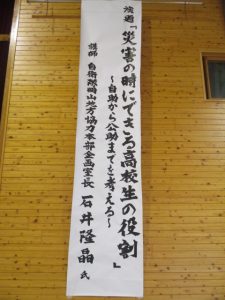 演題「災害の時にできる高校生の役割」
~自助から公助までを考える~
講師 自衛隊岡山地方協力本部企画室長 石井隆晶氏